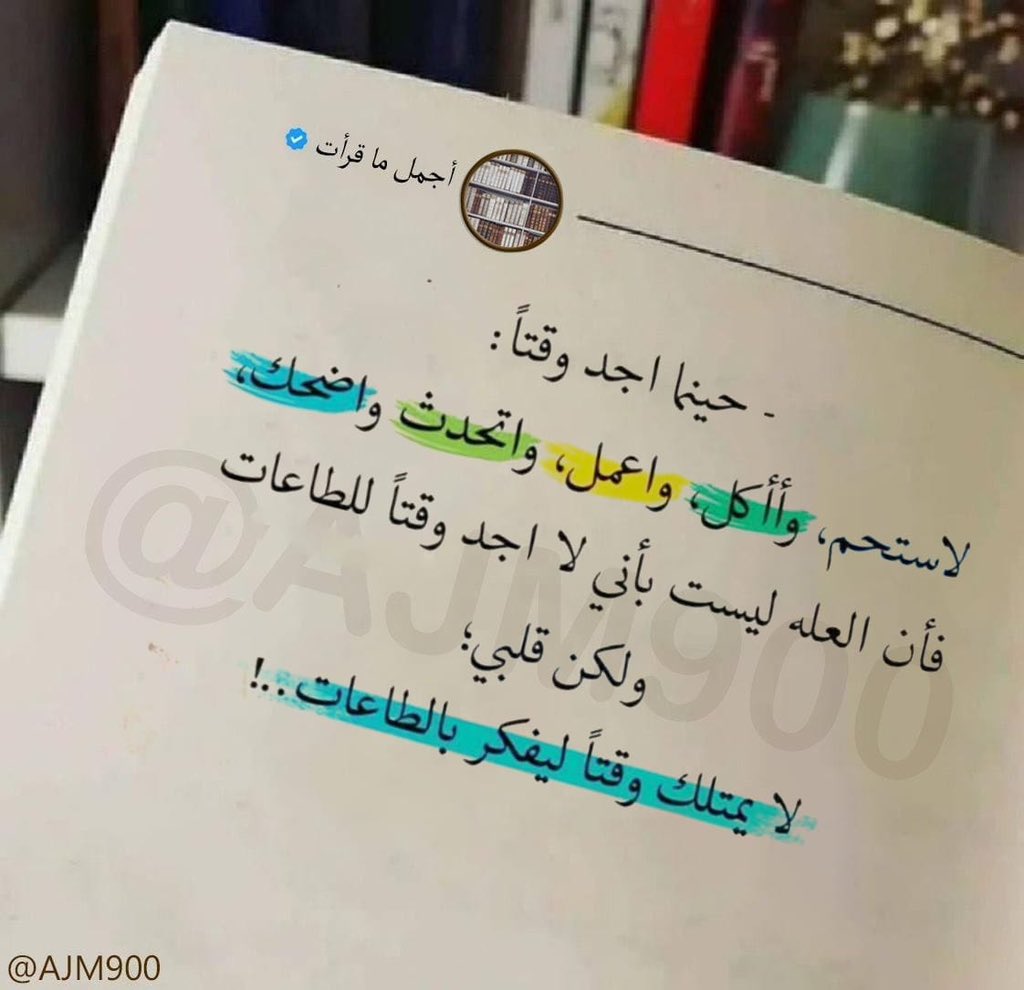 أجمل ما قرأت
- حينما اجد وقتاً :
لاستحم، وأأكل، واعمل، واتحدث واضحك،
فأن العله ليست بأني لا اجد وقتاً للطاعات
ولكن قلبي؛
لا يمتلك وقتاً ليفكر بالطاعات..!
@AJM900
@AJM900